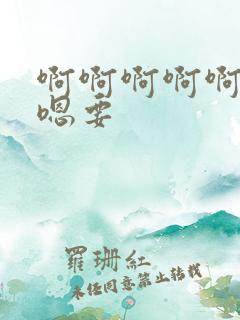 啊啊啊啊啊
嗯要
羅珊紅
未经同意禁止转载